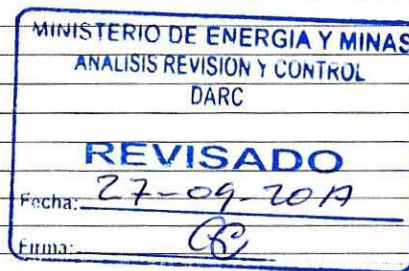 MINISTERIO DE ENERGIA Y MINAS
ANALISIS REVISION Y CONTROL
DARC
REVISADO
Fecha: 27-09-2017
Firma: